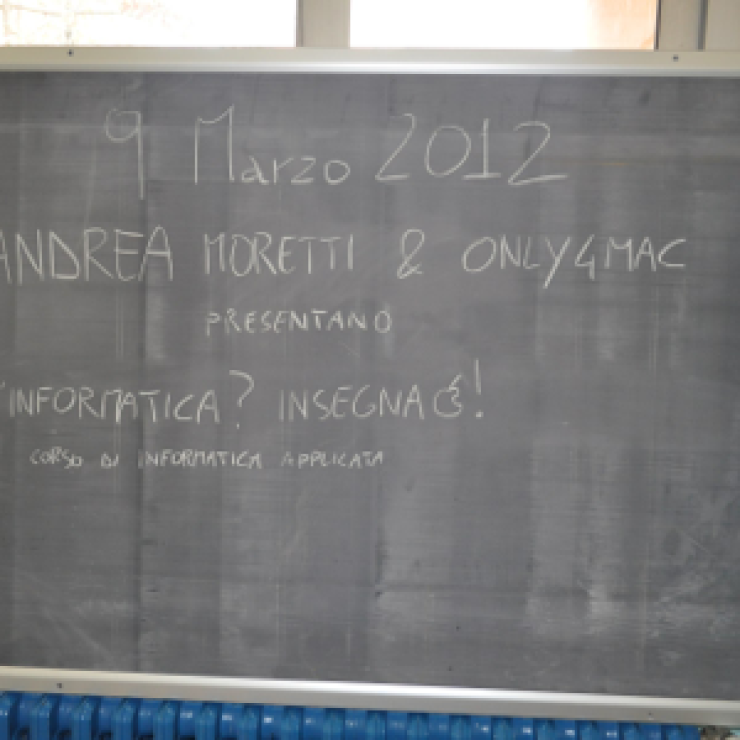 9 Marzo 2012
ANDREA MORETTI & ONLY4MAC
PRESENTANO
'INFORMATICA? INSEGNA !
CORSO DI INFORMATICA APPLICATA